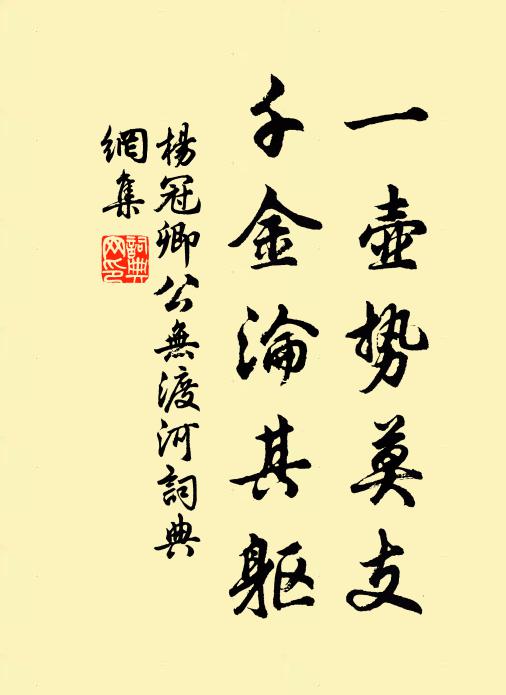 一壺势莫支
千金淪其躯
楊冠卿公無渡河詞典
網集
詞典网印